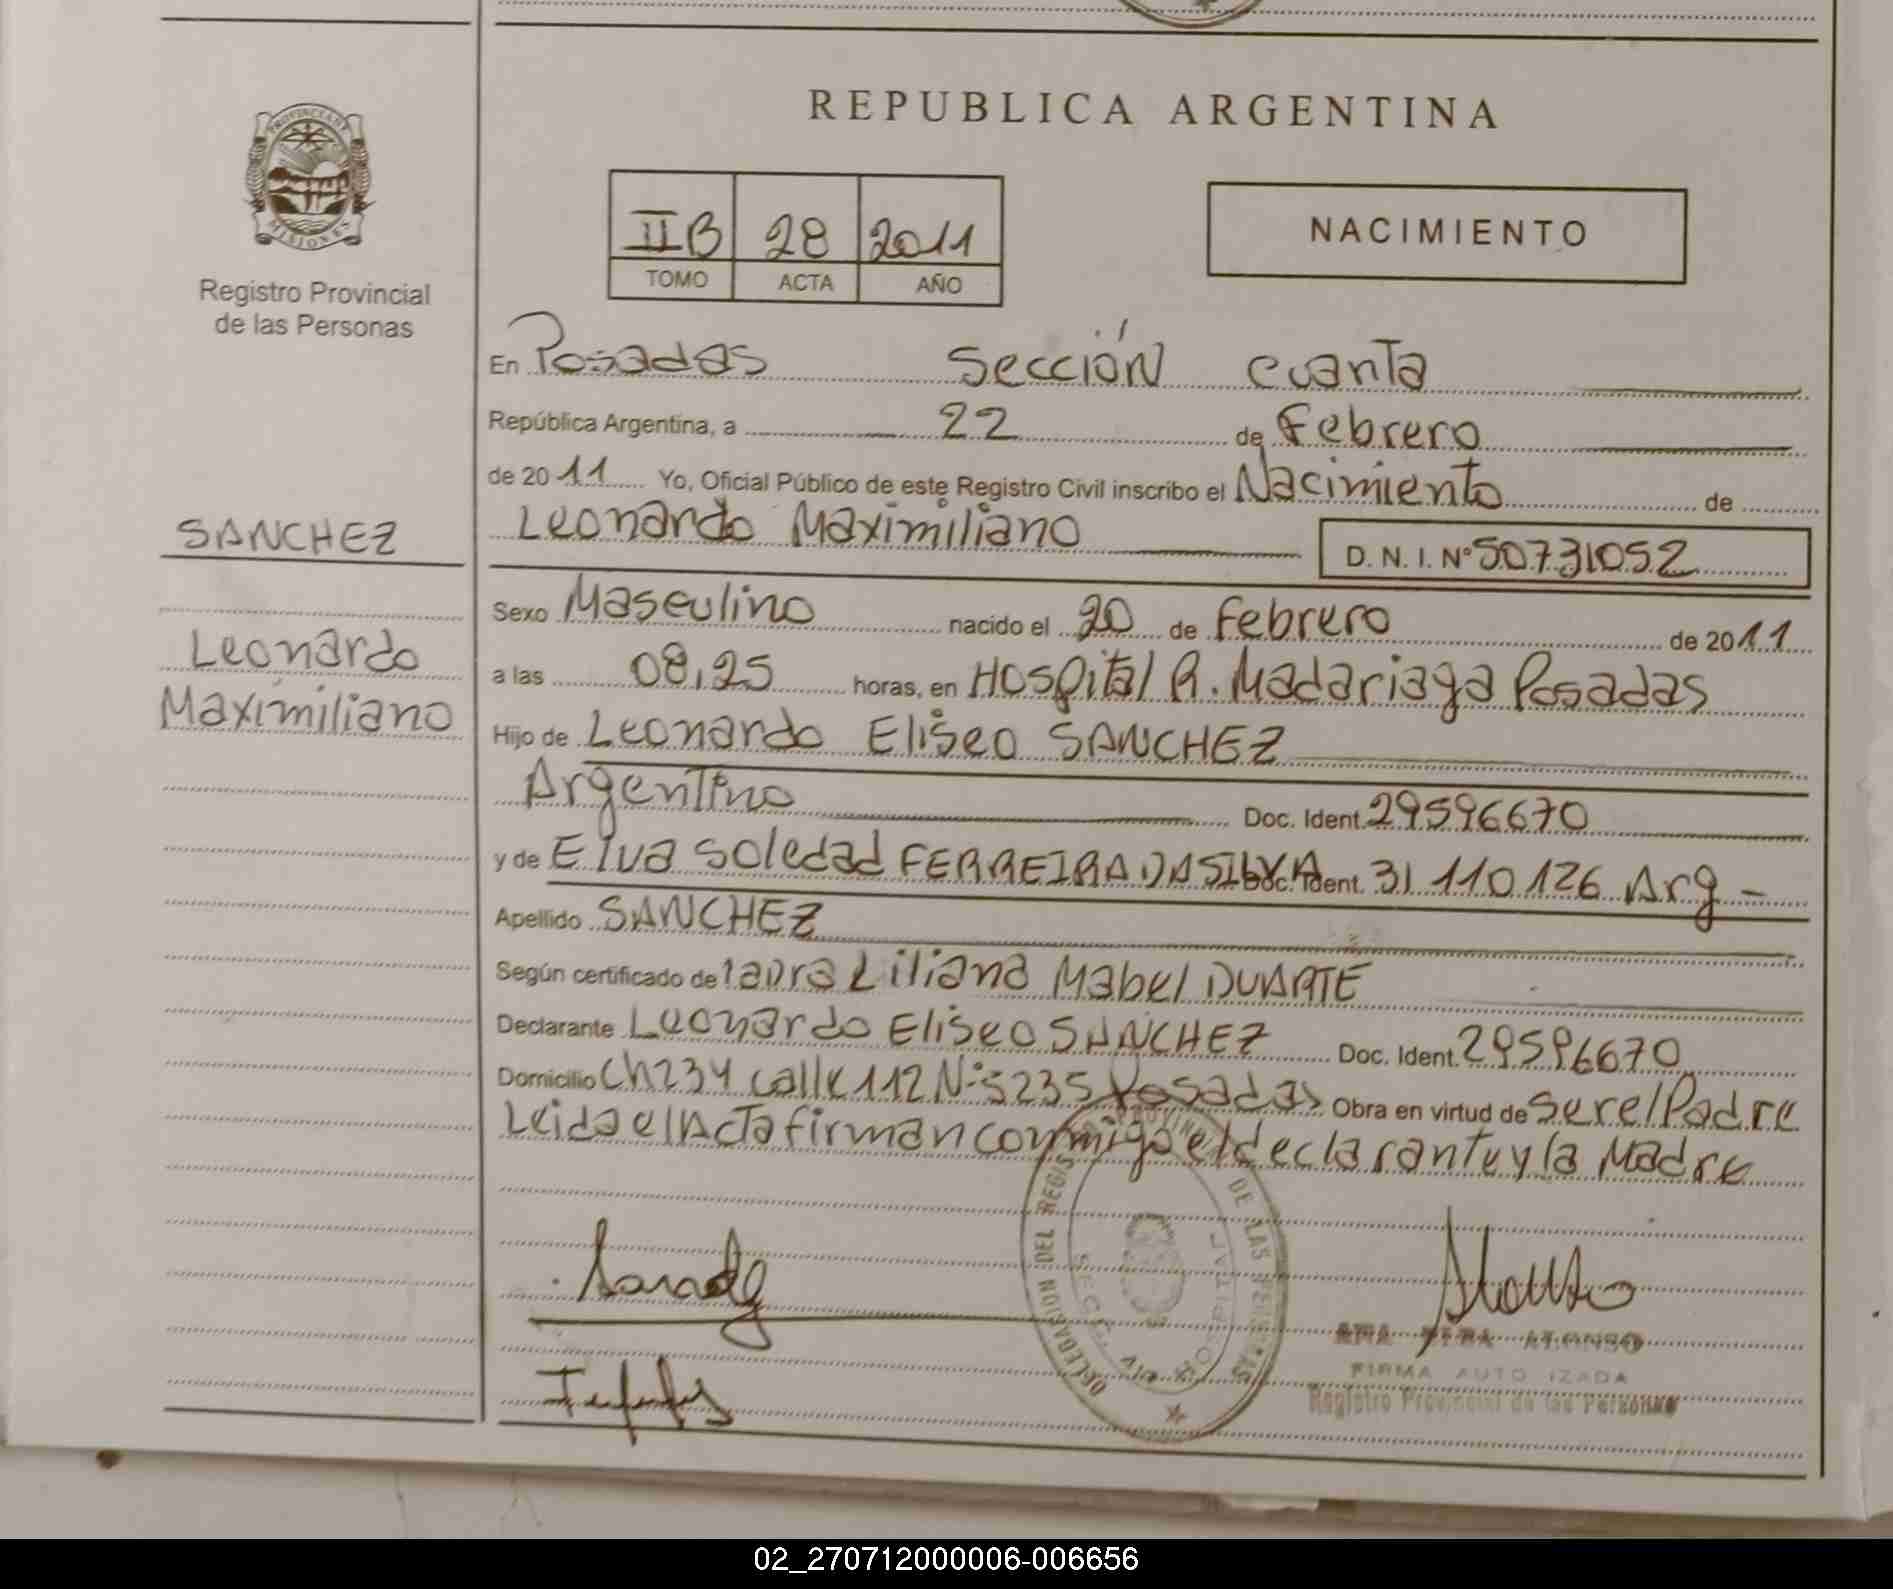 REPUBLICA ARGENTINA
PROVINCIA DE MISIONES
Registro Provincial
de las Personas
IIB 28 2011
TOMO ACTA AÑO
NACIMIENTO
En Posadas Sección cuarta
República Argentina, a 22 de Febrero
de 2011 Yo, Oficial Público de este Registro Civil inscribo el Nacimiento de
Leonardo Maximiliano D. N. I. Nº 50731052
SANCHEZ
Leonardo
Maximiliano
Sexo Masculino nacido el 20 de Febrero de 2011
a las 08,25 horas, en Hospital R. Madariaga Posadas
Hijo de Leonardo Eliseo SANCHEZ
Argentino Doc. Ident. 29596670
y de Elva Soledad FERREIRA DA SILVA Doc. Ident. 31 110 126 Arg -
Apellido SANCHEZ
Según certificado de Laura Liliana Mabel DUARTE
Declarante Leonardo Eliseo SANCHEZ Doc. Ident. 29596670
Domicilio Ch 234 calle 112 Nº 5235 Posadas Obra en virtud de Ser el Padre
Leida el Acta firman conmigo el declarante y la Madre
DELEGACION DEL REGISTRO PROVINCIAL DE LAS PERSONAS
HOSPITAL
ALONSO
FIRMA AUTO IZADA
Registro Provincial de las Personas
02_270712000006-006656